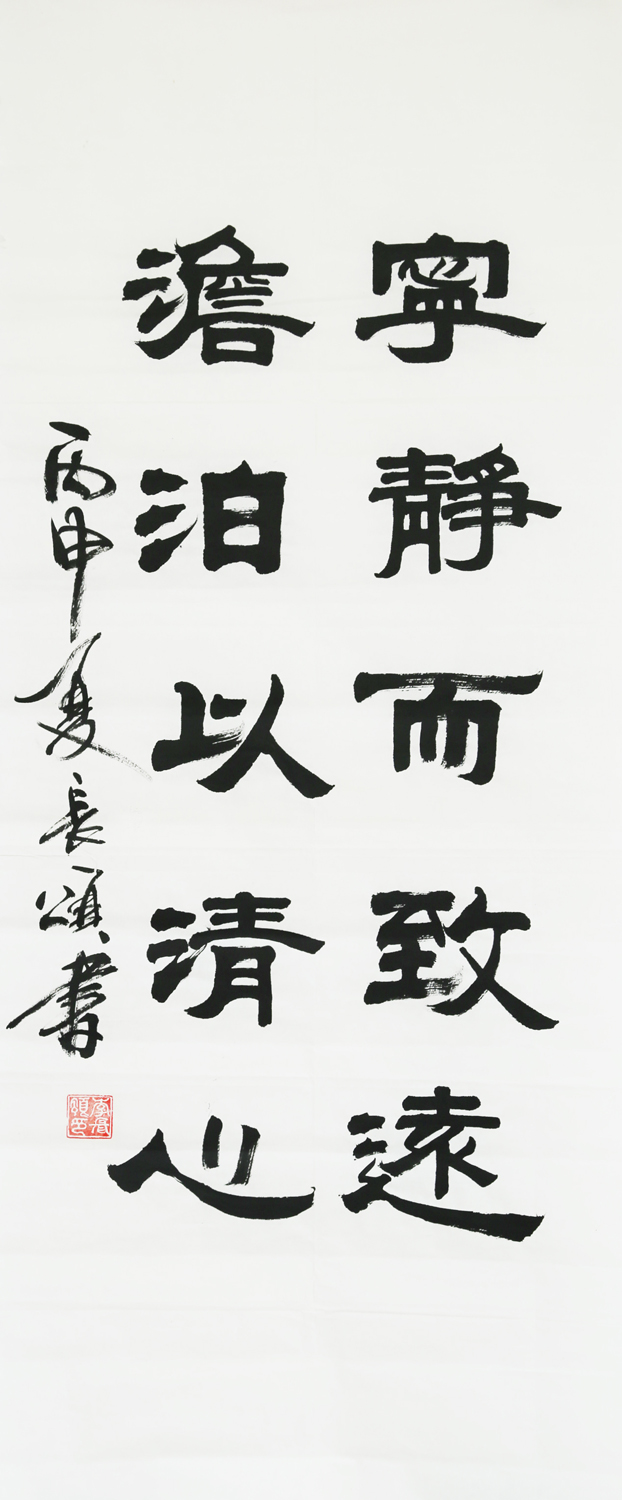 寧靜而致遠
澹泊以清心
丙申夏長頌書